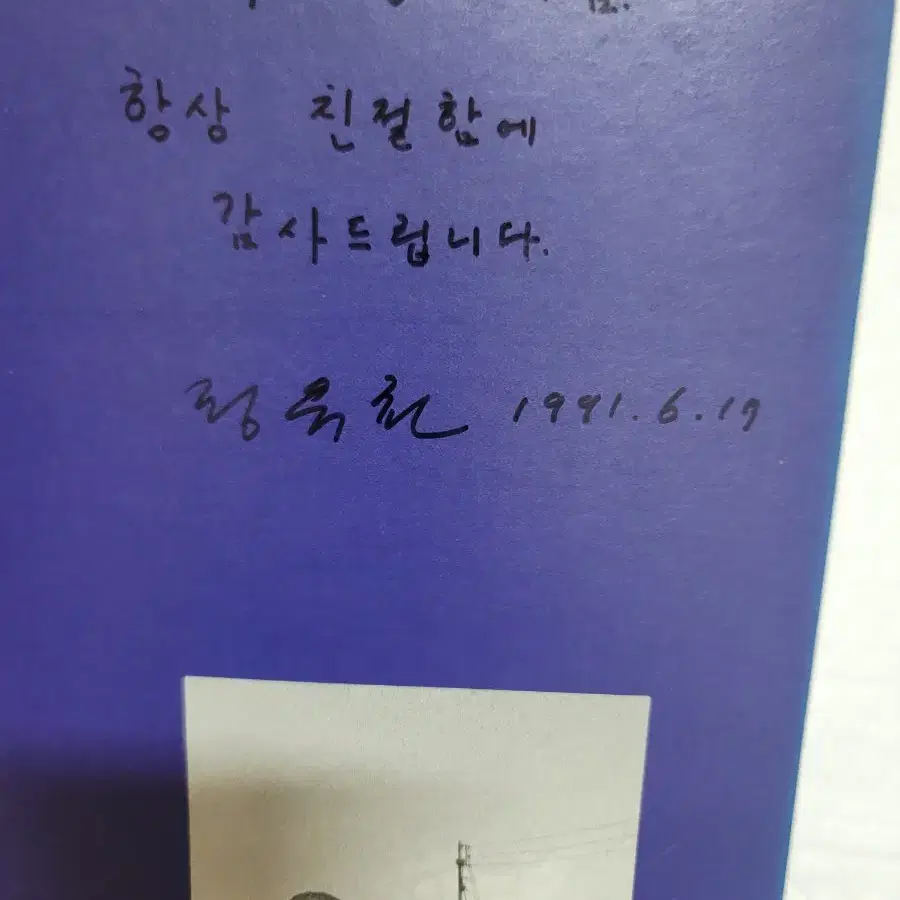 항상 친절함에
감사드립니다.
1991. 6. 17